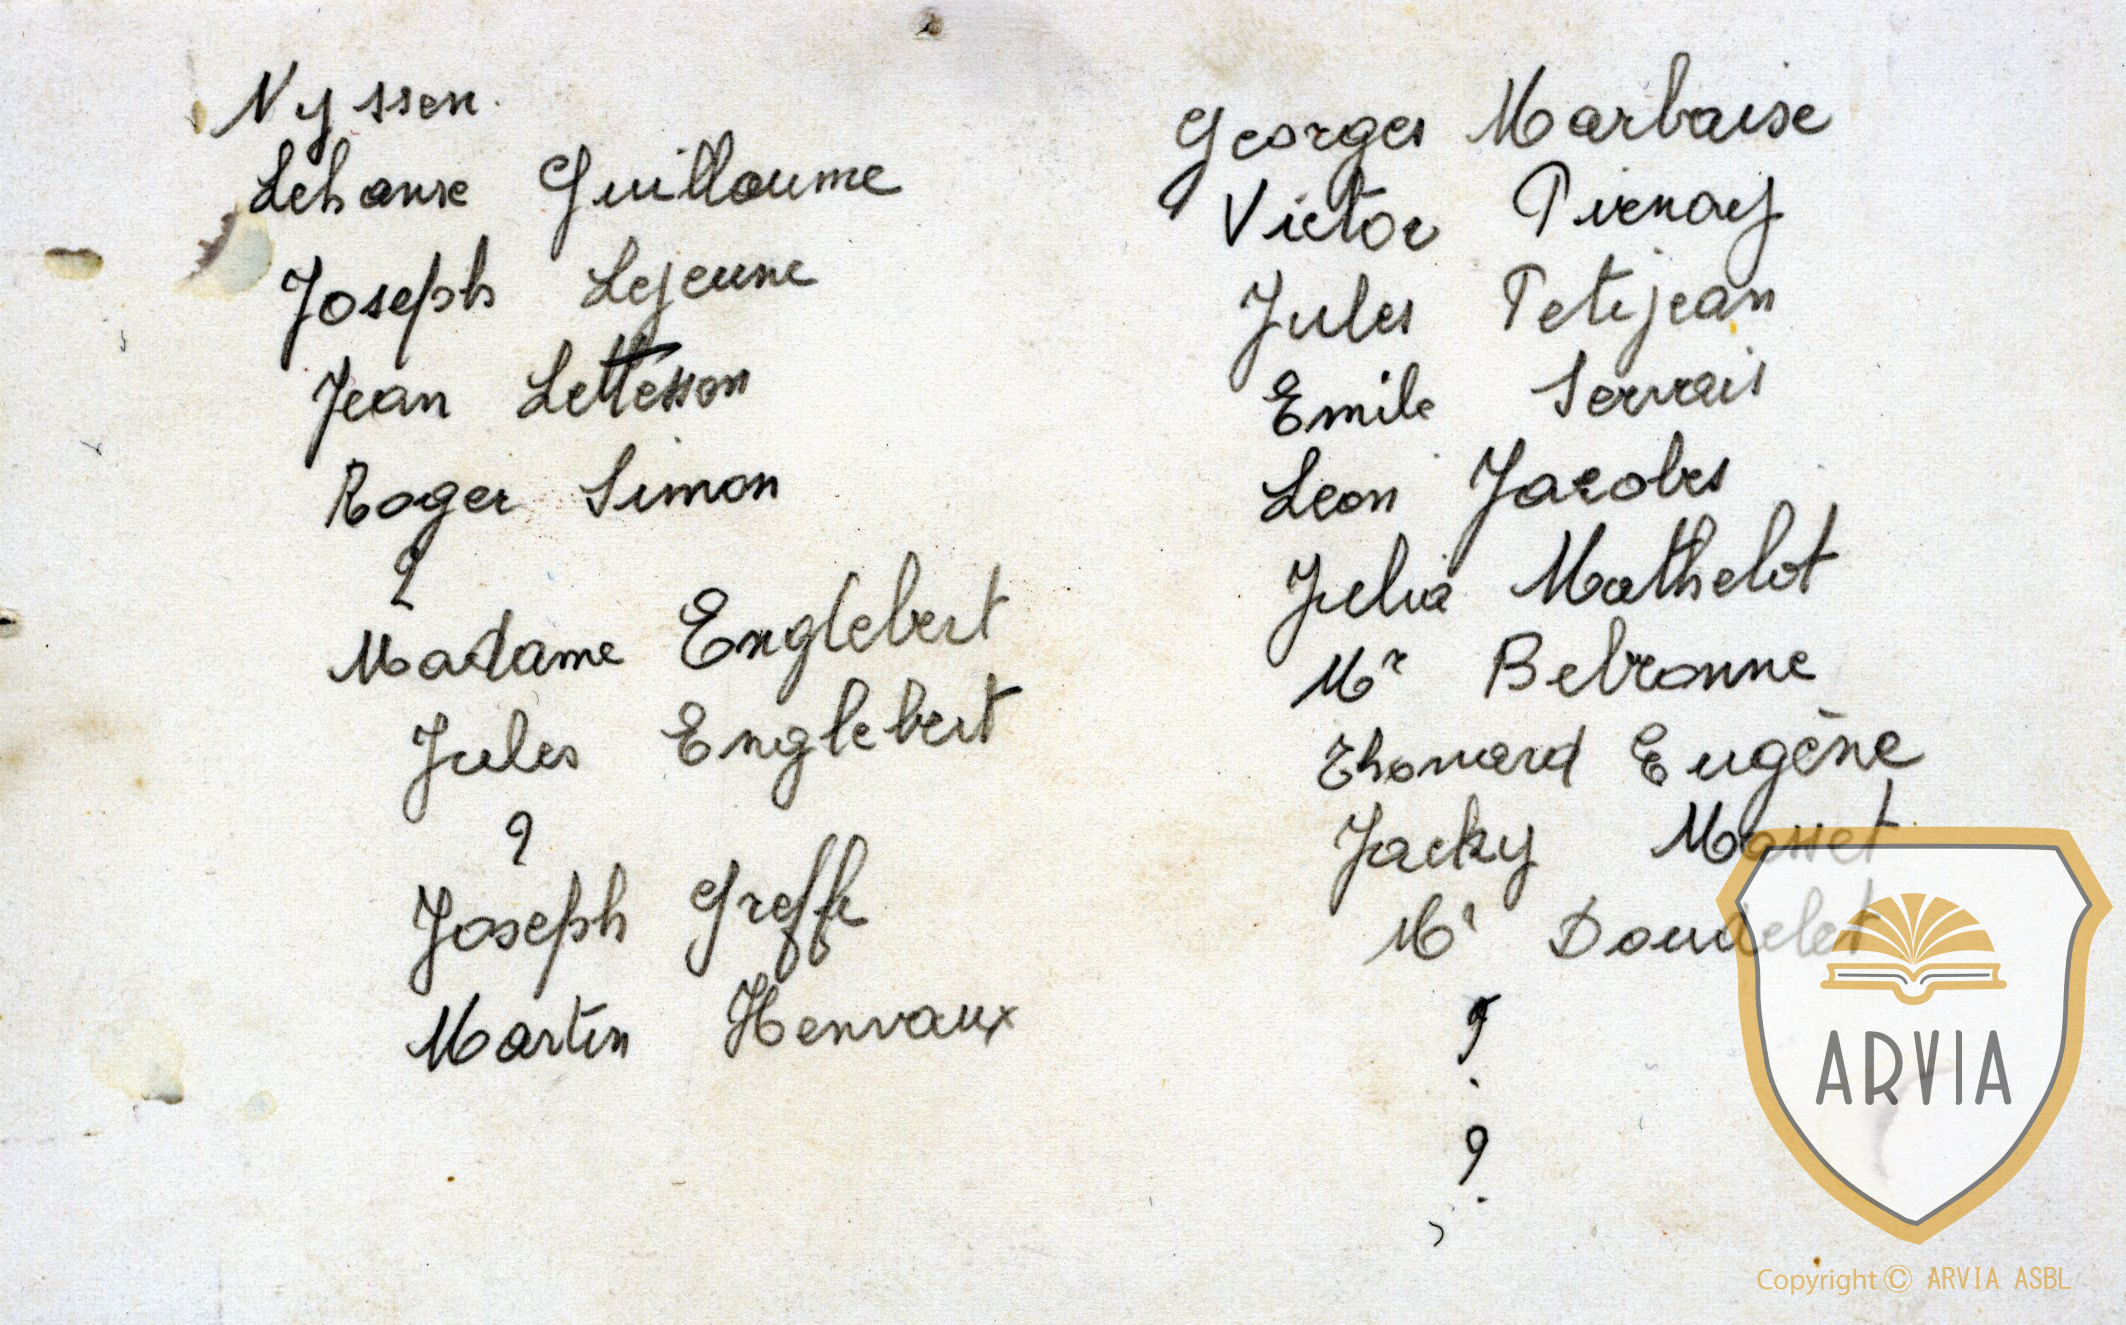 Nyssen.
Lehanse Guillaume
Joseph Lejeune
Jean Lettesson
Roger Simon
?
Madame Englebert
Jules Englebert
?
Joseph Greffe
Martin Henvaux
Georges Marbaise
Victor Pirnay
Jules Petijean
Emile Servais
Leon Jacobs
Julia Mathelot
Mr Bebronne
Thonard Eugène
Jacky Mosset
Mr Doudelet
?
?
ARVIA
Copyright © ARVIA ASBL